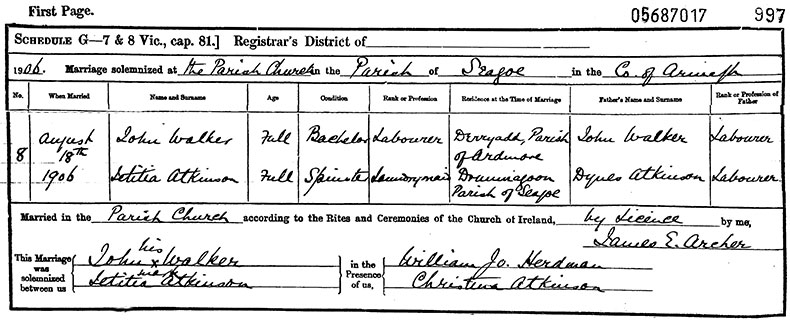 First Page. 05687017 997
SCHEDULE G—7 & 8 Vic., cap. 81.] Registrar's District of
1906. Marriage solemnized at the Parish Church in the Parish of Seagoe in the Co. of Armagh
No. When Married Name and Surname Age Condition Rank or Profession Residence at the Time of Marriage Father's Name and Surname Rank or Profession of Father
8 August 18th 1906 John Walker Full Bachelor Labourer Derryadd, Parish of Ardmore John Walker Labourer
Letitia Atkinson Full Spinster Laundrymaid Drumnagoon Parish of Seagoe Dynes Atkinson Labourer
Married in the Parish Church according to the Rites and Ceremonies of the Church of Ireland, by Licence by me,
James E. Archer
This Marriage was solemnized between us John his x mark Walker in the Presence of us, William Jo. Herdman
Letitia Atkinson Christina Atkinson